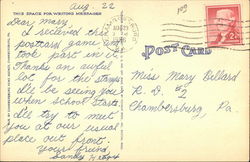 Aug. 22
THIS SPACE FOR WRITING MESSAGES
Dear Mary,
I received this
postcard game and
took part in it.
Thanks an awful
lot for the stamps.
I'll be seeing you
when school starts.
I'll try to meet
you at our usual
place out front.
Your friend,
Sandy
POST CARD
Miss Mary Dillard
R. D. # 2
Chambersburg Pa.
2¢